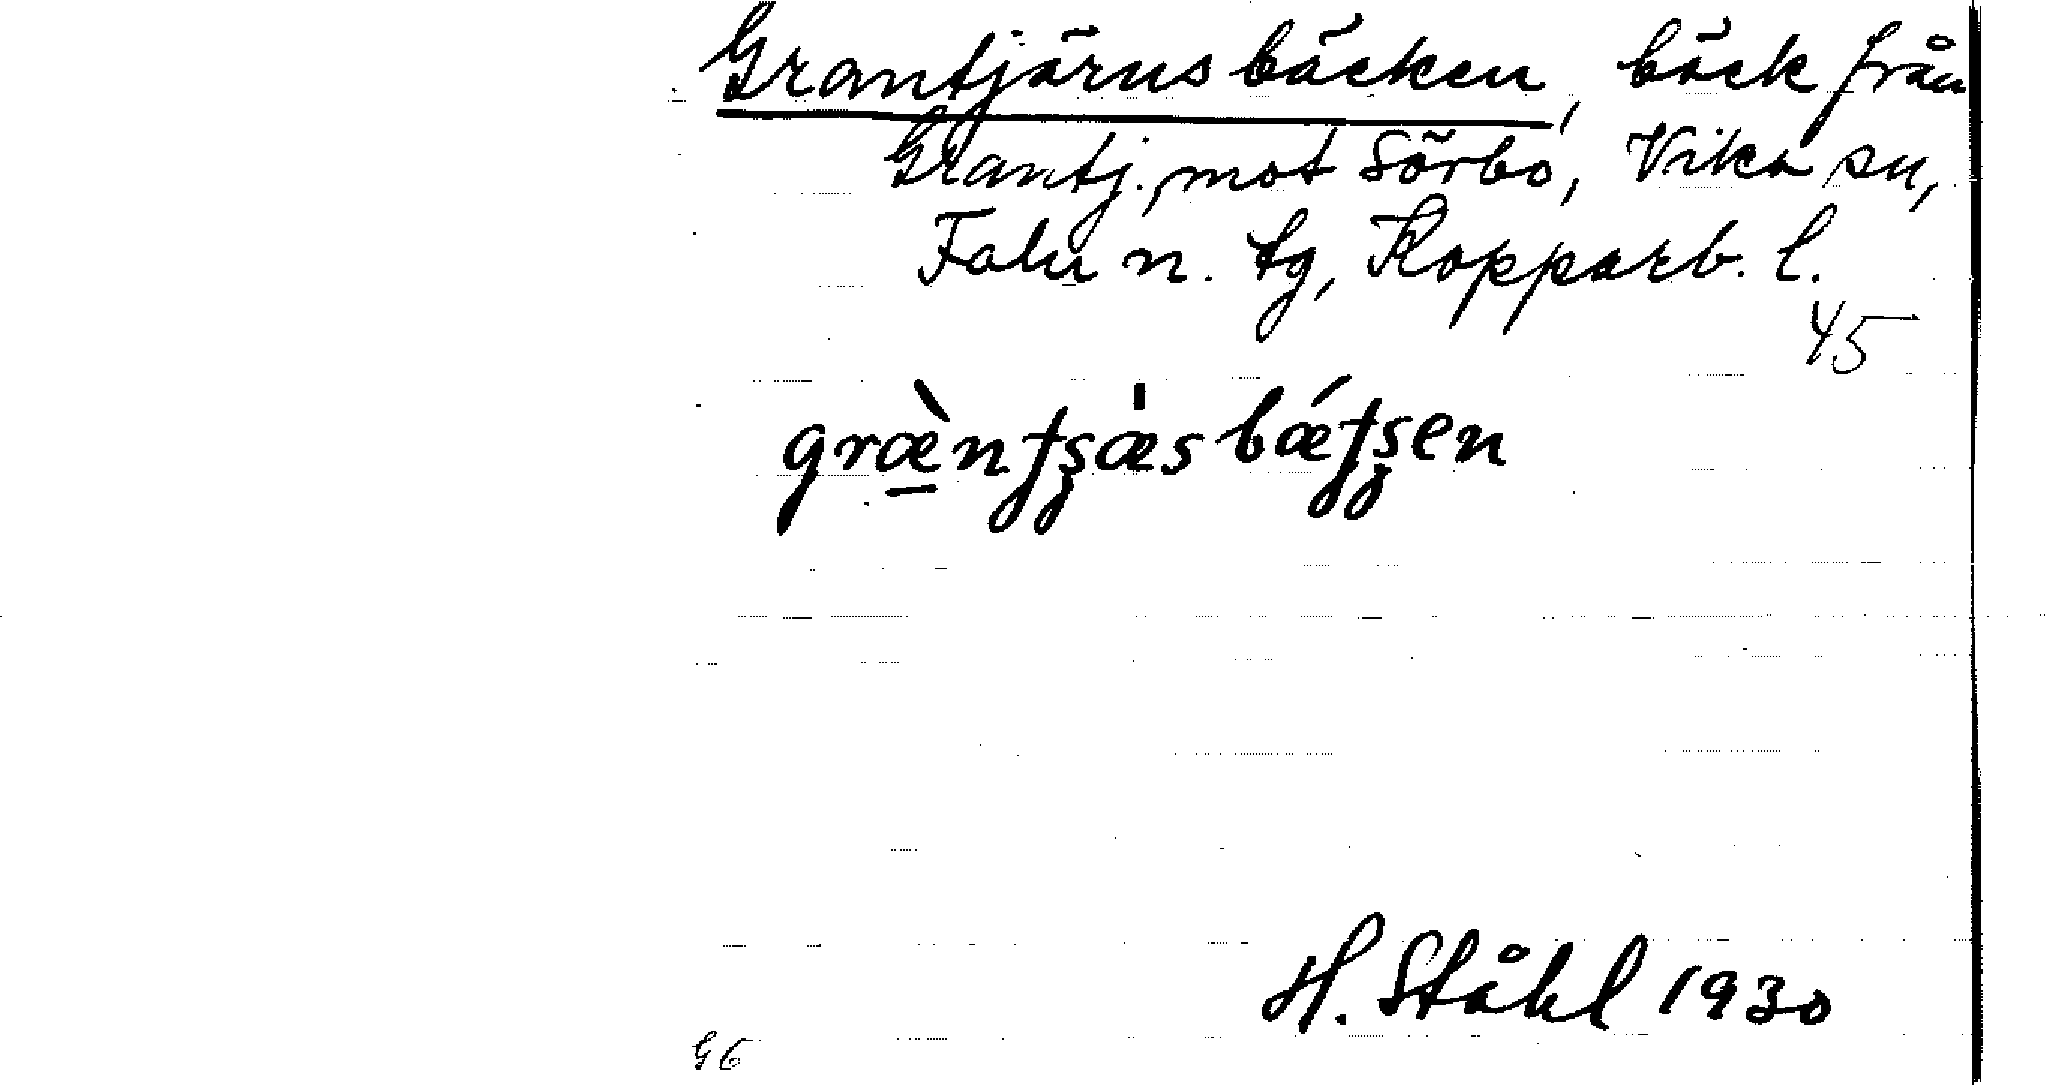 Grantjärnsbäcken, bäck från
Grantj., mot Sörbo, Vika sn,
Falu n. tg, Kopparb. l.
45
græ̠̀nʈʂæ̍sbǽʈʂen
H. Ståhl 1930
G6